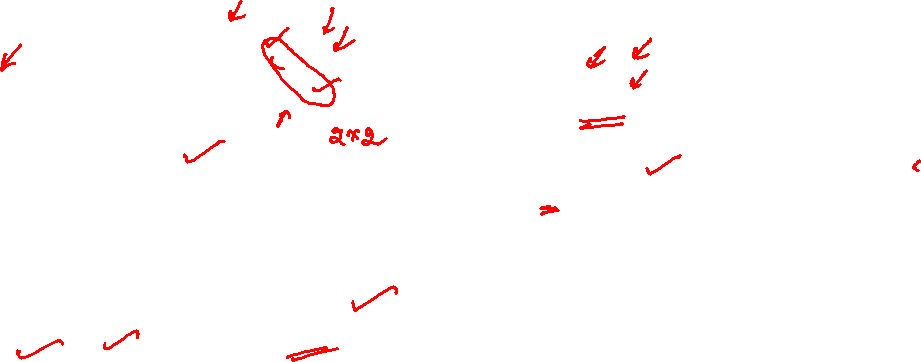 2×2